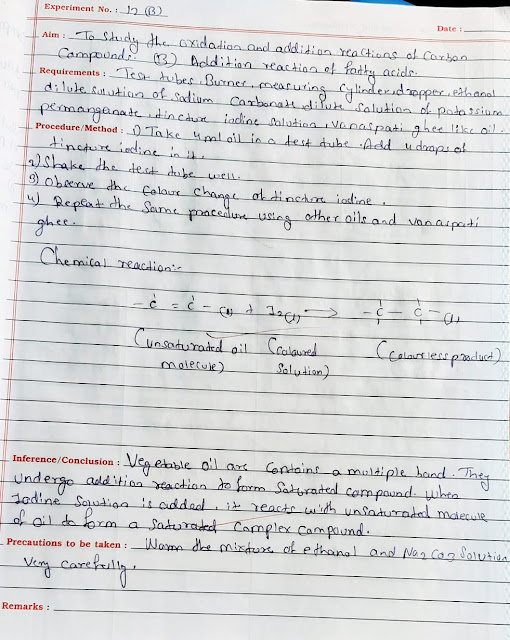 Experiment No. : 12 (B)
Date :
Aim : To study the oxidation and addition reactions of Carbon
Compounds: (B) Addition reaction of fatty acids.
Requirements : Test tubes, Burner, measuring Cylinder, dropper, ethanol
dilute solution of Sodium Carbonate, dilute Solution of potassium
permanganate, tincture iodine solution, vanaspati ghee like oil.
Procedure/Method : 1) Take 4ml oil in a test tube. Add 4 drops of
tincture iodine in it.
2) Shake the test tube well.
3) Observe the Colour Change of tincture iodine.
4) Repeat the Same procedure using other oils and vanaspati
ghee.
Chemical reaction:-
-C = C - (l) + I2(l) → -C - C - (l)
(unsaturated oil (Coloured (Colourless product)
molecule) Solution)
Inference/Conclusion : Vegetable oil are Contains a multiple band. They
undergo addition reaction to form Saturated compound. When
Iodine Soution is added, it reacts with unsaturated molecule
of oil to form a Saturated Complex Compound.
Precautions to be taken : Warm the mixture of ethanol and Na2CO3 Solution
very carefully.
Remarks :